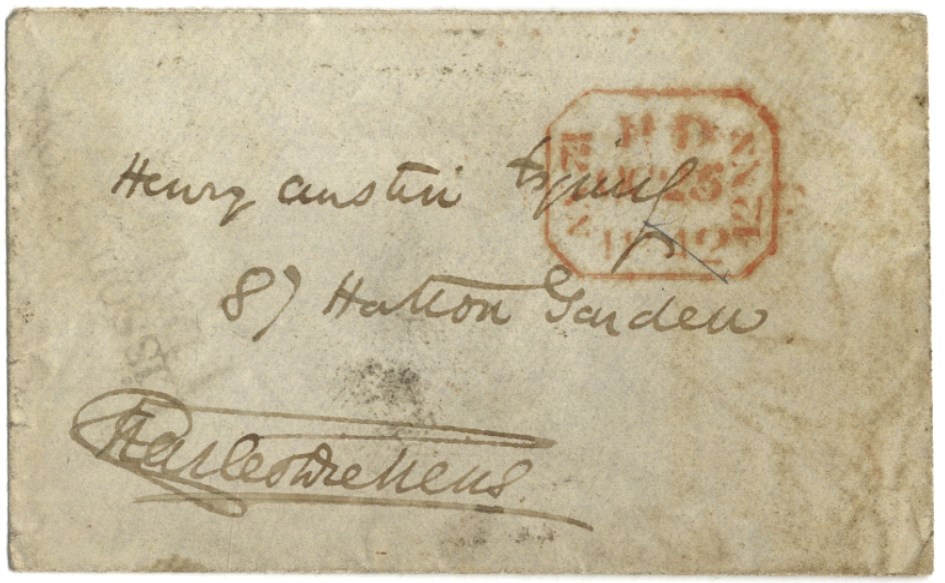 PD
25
1842
Henry Austin Esquire
87 Hatton Garden
Charles Dickens